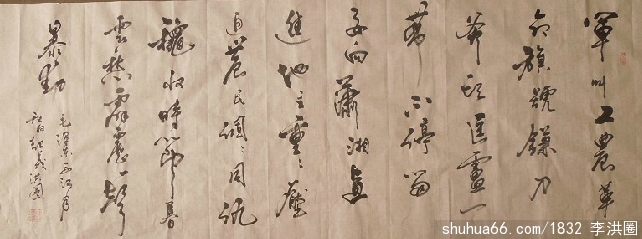 軍叫工農革
命旗號鐮刀
斧頭匡廬一
帶不停留
要向瀟湘直
進地主重々壓
迫農民個々同仇
穐收時節暮
雲愁霹靂一聲
暴動
毛澤東西江月
洪圈
shuhua66.com/1832 李洪圈